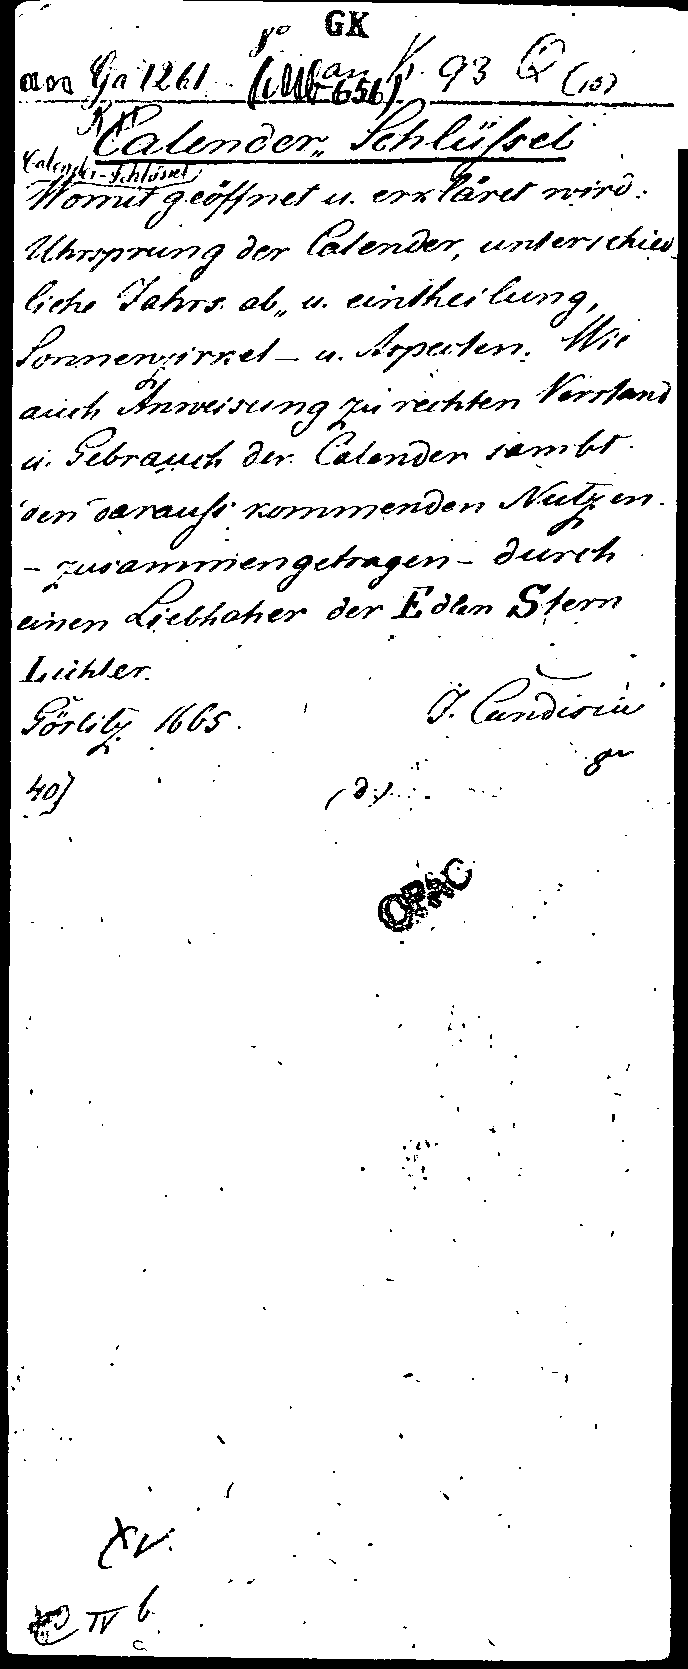 GK
8°
an Ga 1261 (Mb 656) an K. 93 Q (10)
Calender„ Schlüssel
Calender-Schlüssel
Womit geöffnet u. erkläret wird:
Uhrsprung der Calender, unterschied-
liche Jahrs. ab„ u. eintheilung,
Sonnenzirkel – u. Aspecten. Wie
auch Anweisung zu rechten Verstand
u. Gebrauch der Calender sambt
den darauß kommenden Nutzen.
– zusammengetragen – durch
einen Liebhaber der Edlen Stern
Lichter.
Görlitz 1665. J. Cundisiu
40] (d.)
OPAC
XV.
IV b